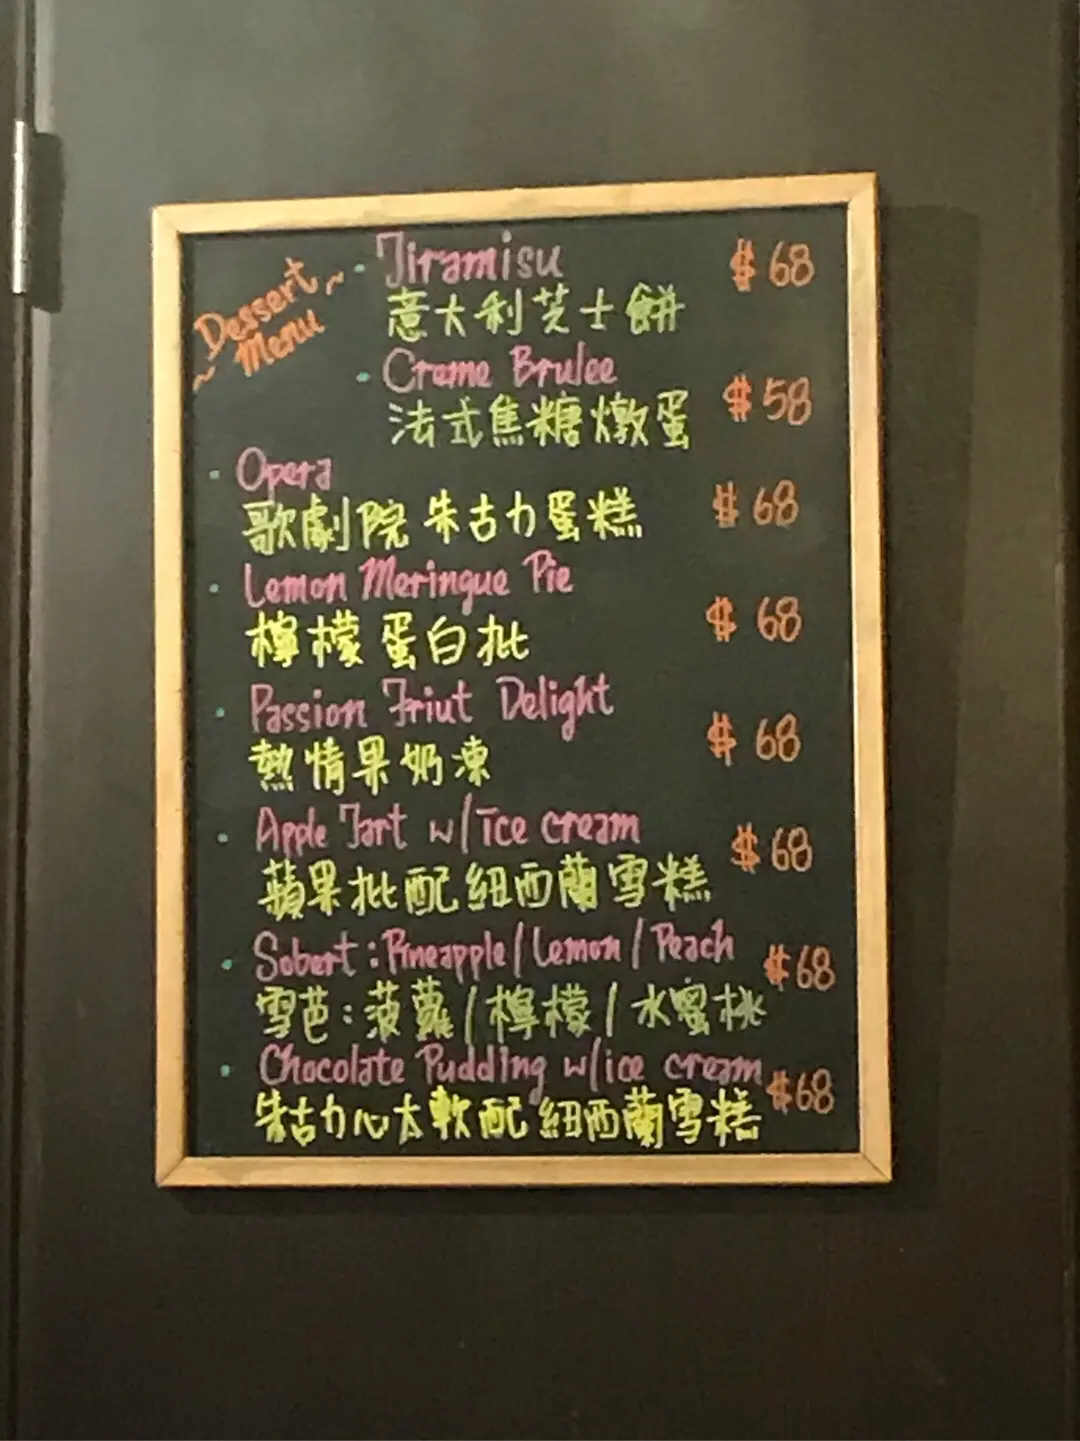 ~ Dessert Menu ~
· Tiramisu $68
意大利芝士餅
· Creme Brulee $58
法式焦糖燉蛋
· Opera
歌劇院朱古力蛋糕 $68
· Lemon Meringue Pie
檸檬蛋白批 $68
· Passion Friut Delight
熱情果奶凍 $68
· Apple Tart w/ice cream $68
蘋果批配紐西蘭雪糕
· Sobert:Pineapple/Lemon/Peach $68
雪芭:菠蘿/檸檬/水蜜桃
· Chocolate Pudding w/ice cream $68
朱古力心太軟配紐西蘭雪糕